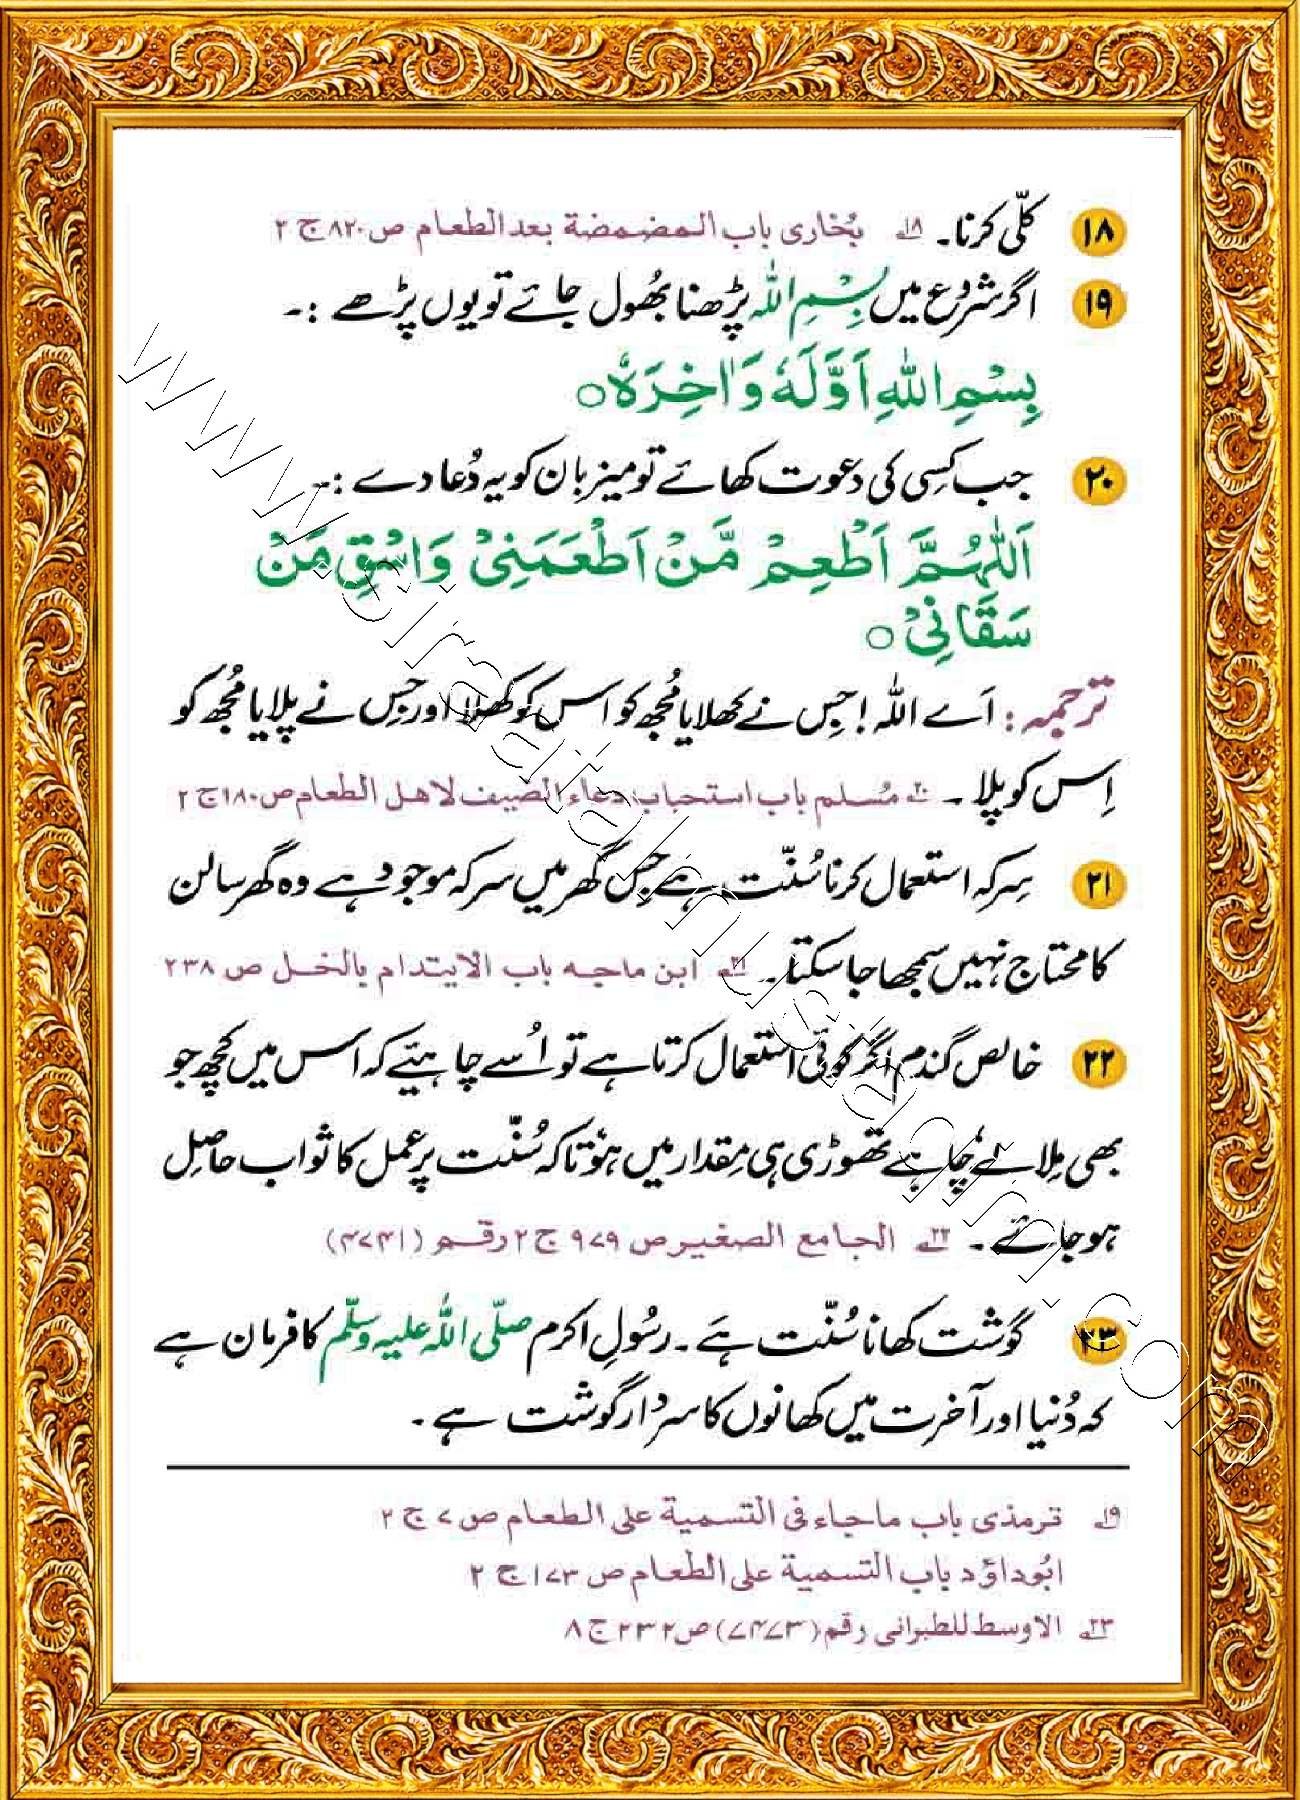 ۱۸ کلّی کرنا۔ ۱۸؎ بُخاری باب المضمضة بعد الطعام ص ۸۲۰ ج ۲
۱۹ اگر شروع میں بِسْمِ اللہ پڑھنا بھُول جائے تو یوں پڑھے :۔
بِسْمِ اللهِ اَوَّلَهٗ وَاٰخِرَهٗ ○
۲۰ جب کِسی کی دعوت کھائے تو میزبان کو یہ دُعا دے :۔
اَللّٰهُمَّ اَطْعِمْ مَّنْ اَطْعَمَنِیْ وَاسْقِ مَنْ
سَقَانِیْ ○
ترجمہ : اَے اللہ ! جِس نے کھلایا مُجھ کو اس کو کھلا اور جِس نے پلایا مُجھ کو
اِس کو پلا ۔ ۲۰؎ مُسلم باب استحباب دعاء الضیف لاهل الطعام ص ۱۸۰ ج ۲
۲۱ سِرکہ استعمال کرنا سُنّت ہے جِس گھر میں سرکہ موجود ہے وہ گھر سالن
کا محتاج نہیں سمجھا جا سکتا۔ ۲۱؎ ابن ماجه باب الایتدام بالخل ص ۲۳۸
۲۲ خالص گندم اگر کوئی استعمال کرتا ہے تو اُسے چاہیئے کہ اس میں کچھ جو
بھی مِلا لے چاہے تھوڑی ہی مِقدار میں ہو تاکہ سُنّت پر عمل کا ثواب حاصِل
ہو جائے ۔ ۲۲؎ الجامع الصغیر ص ۹۷۹ ج ۲ رقم (۴۷۴۱)
۲۳ گوشت کھانا سُنّت ہَے ۔ رسُولِ اکرم صلّی اللہ علیہ وسلّم کا فرمان ہے
کہ دُنیا اور آخرت میں کھانوں کا سردار گوشت ہے ۔
۱۹؎ ترمذی باب ماجاء فی التسمیة علی الطعام ص ۷ ج ۲
ابُوداؤد باب التسمیة علی الطعام ص ۱۷۳ ج ۲
۲۳؎ الاوسط للطبرانی رقم (۷۴۷۳) ص ۲۳۲ ج ۸
www.siraatalmustaqim.com